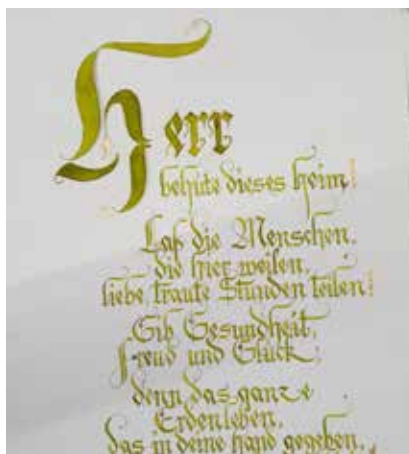 Herr
behüte dieses Heim!
Laß die Menschen,
die hier weilen,
liebe traute Stunden teilen!
Gib Gesundheit,
Freud und Glück;
denn das ganze
Erdenleben,
das in deine Hand gegeben,